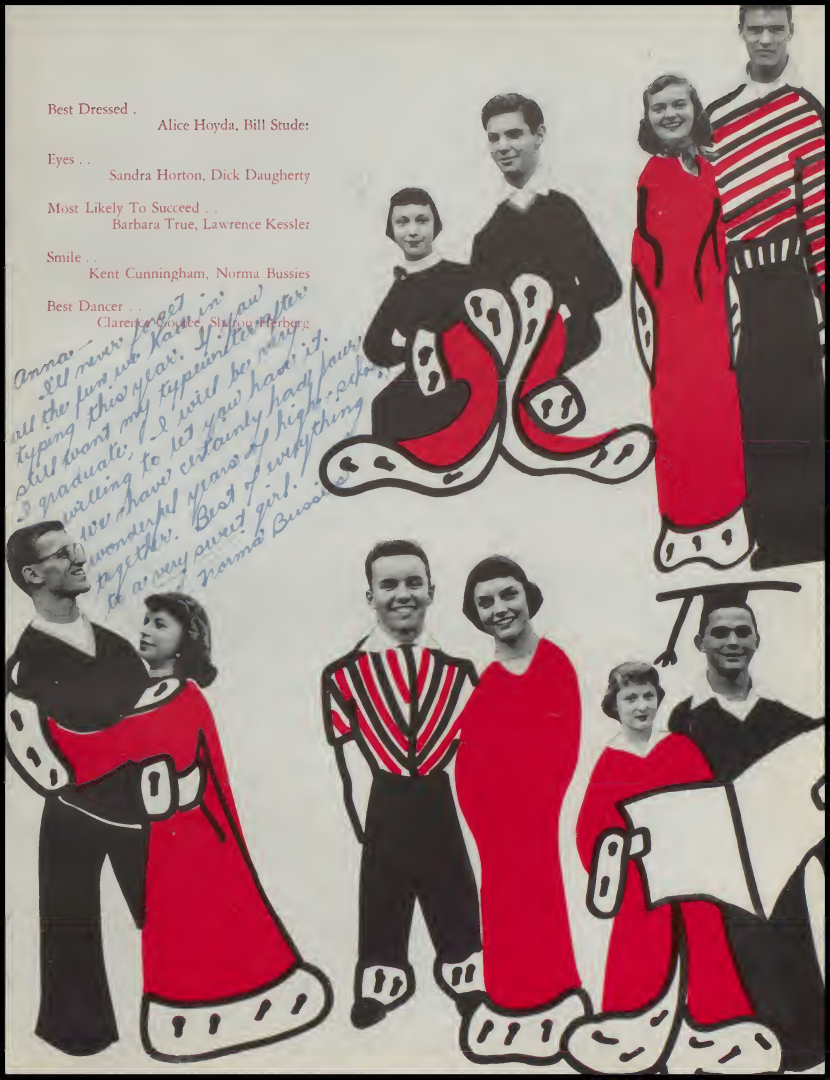 Best Dressed .
Alice Hoyda, Bill Studer
Eyes . .
Sandra Horton, Dick Daugherty
Most Likely To Succeed . .
Barbara True, Lawrence Kessler
Smile . .
Kent Cunningham, Norma Bussies
Best Dancer . .
Clarence Sharon Herberg
Anna—
I'll never forget
all the fun we had in
typing this year. If you
still want my typewriter after
I graduate, I will be very
willing to let you have it.
We have certainly had four
wonderful years of high school
together. Best of everything
to a very sweet girl.
Norma Bussies